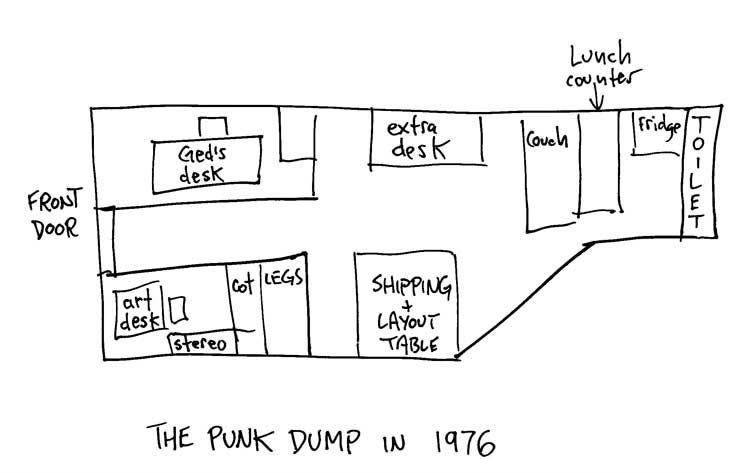 Lunch
counter
Ged's
desk
extra
desk
Couch
Fridge
TOILET
FRONT
DOOR
art
desk
cot
LEGS
stereo
SHIPPING
+
LAYOUT
TABLE
THE PUNK DUMP IN 1976